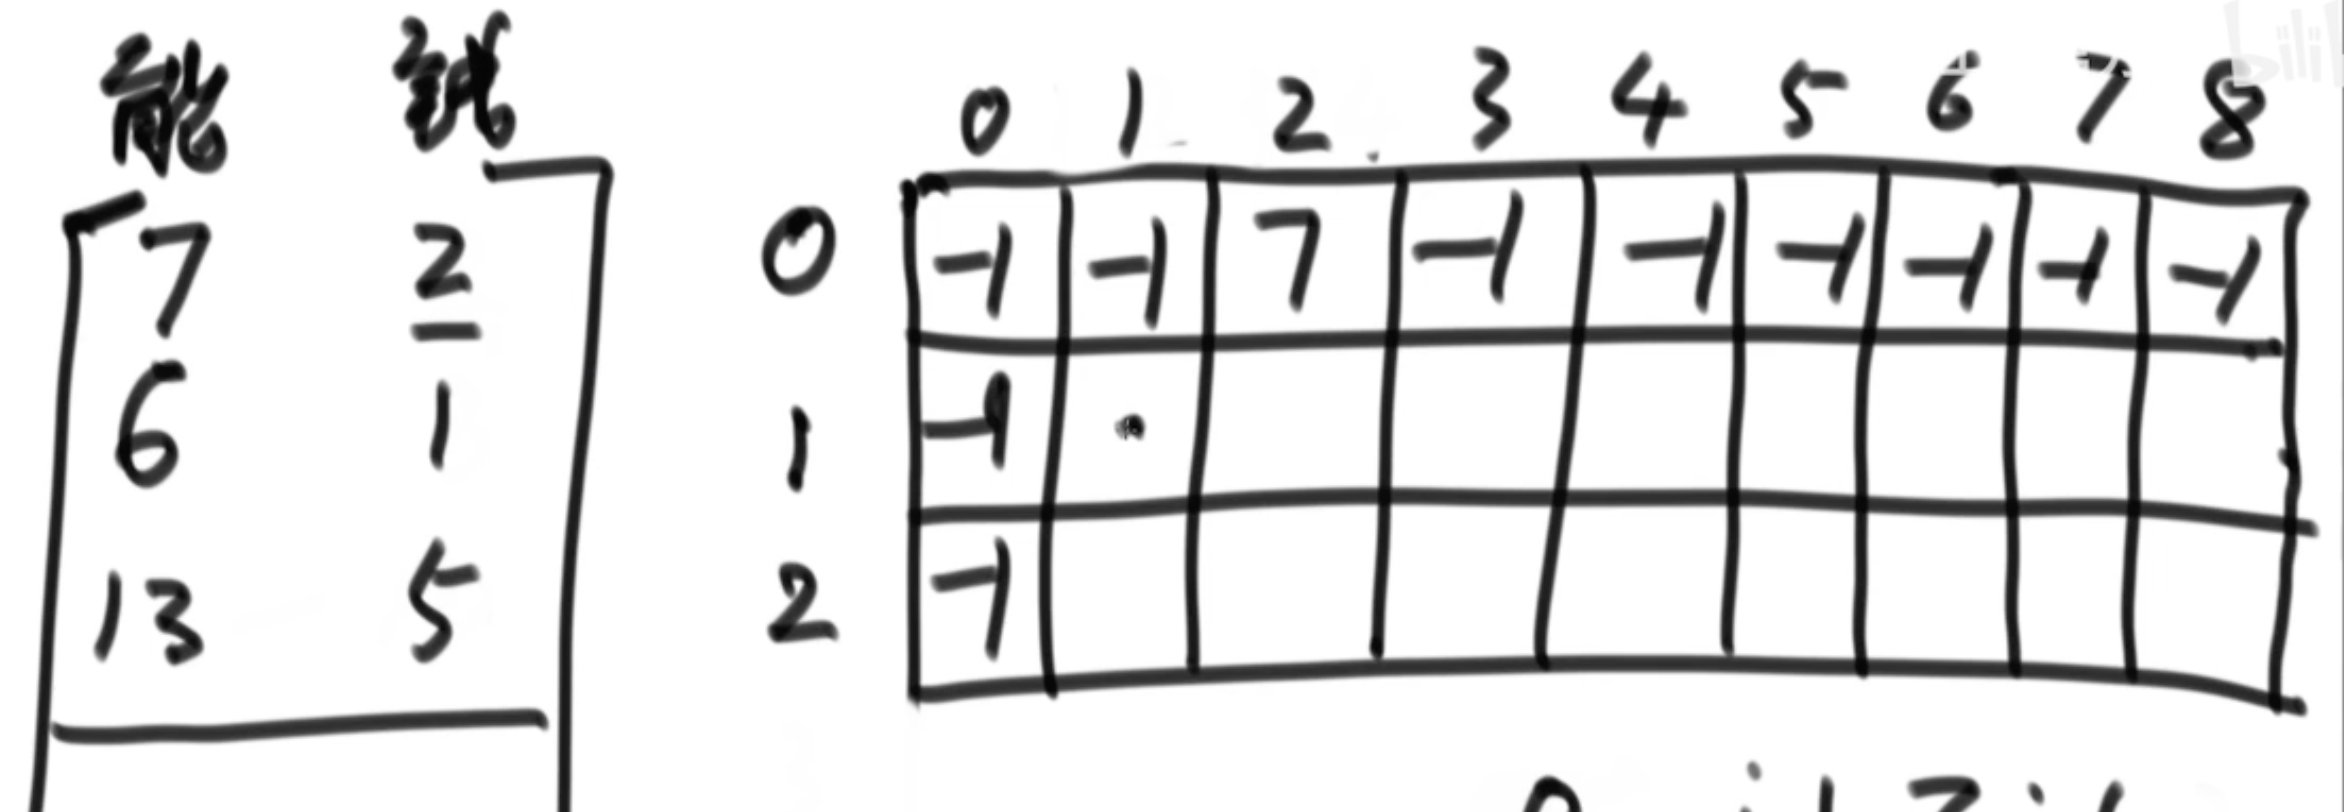 能 钱
7 2
6 1
13 5
0 1 2 3 4 5 6 7 8
0 -1 -1 7 -1 -1 -1 -1 -1 -1
1 -1
2 -1